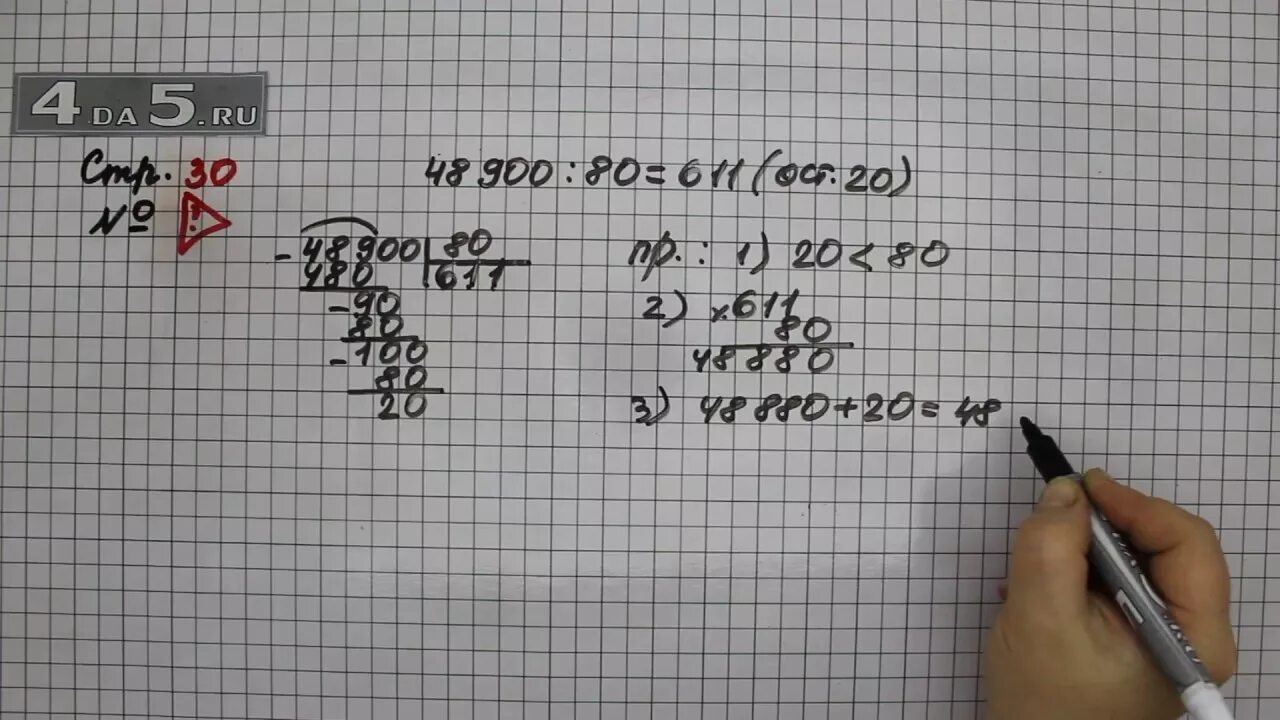 4DA5.RU
Стр. 30
№ ?
48 900 : 80 = 611 (ост. 20)
- 48900 | 80
480 | 611
- 90
80
- 100
80
20
пр. : 1) 20 < 80
2) x 611
80
48 880
3) 48 880 + 20 = 48